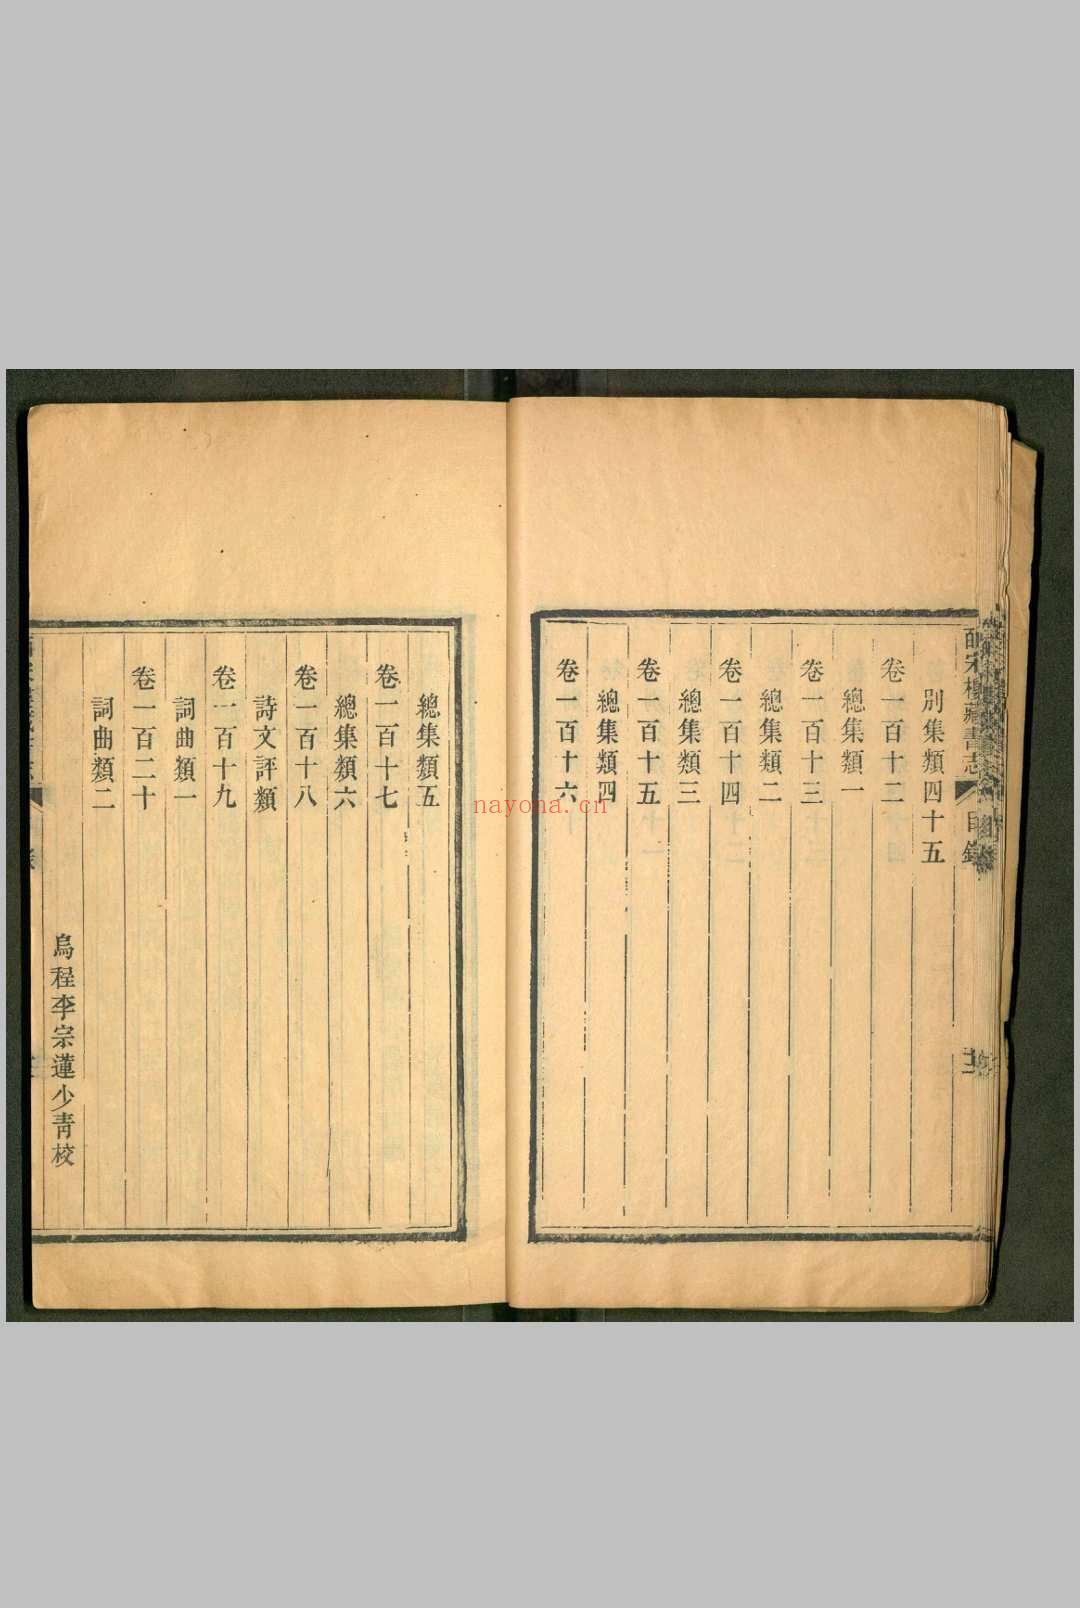 皕宋樓藏書志 目錄
別集類四十五
卷一百十二
總集類一
卷一百十三
總集類二
卷一百十四
總集類三
卷一百十五
總集類四
卷一百十六
總集類五
卷一百十七
總集類六
卷一百十八
詩文評類
卷一百十九
詞曲類一
卷一百二十
詞曲類二
烏程李宗蓮少青校
nayona.cn